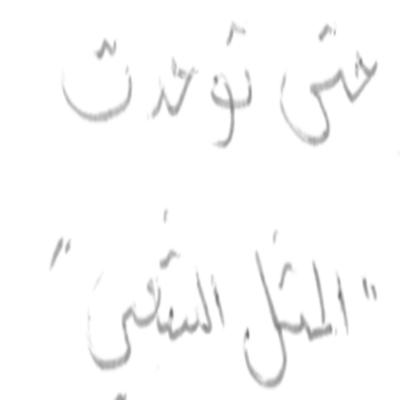 حتى توحدت
"المثل الشعبى"